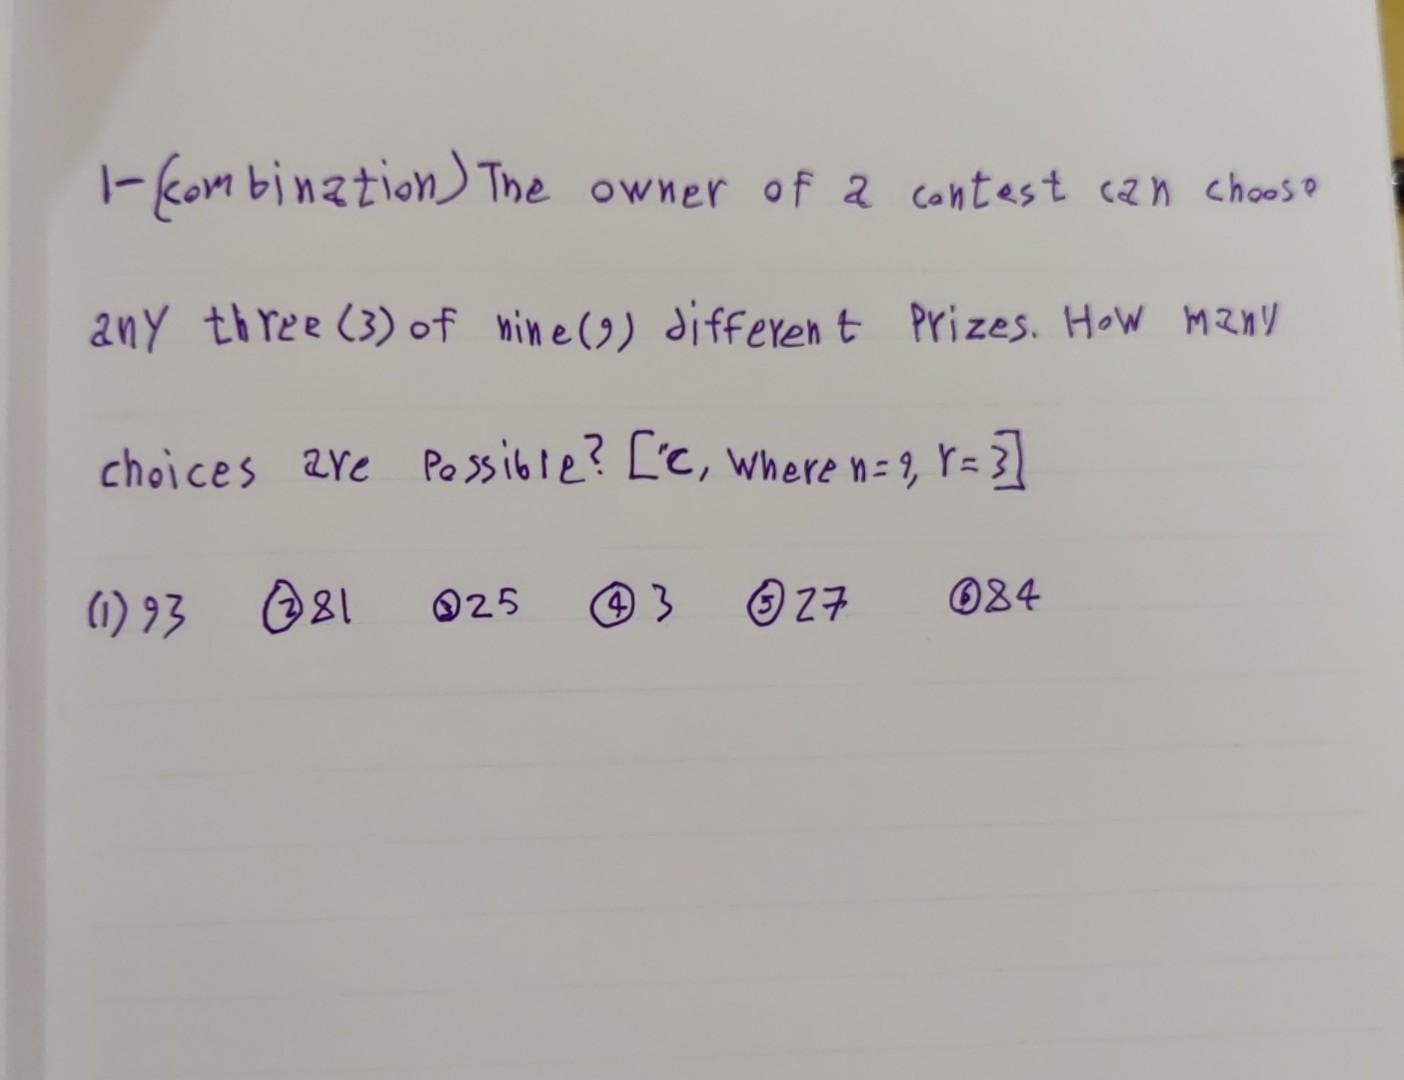 1-(combination) The owner of a contest can choose
any three (3) of nine (9) different Prizes. How many
choices are Possible? [ⁿC, where n=9, r=3]
(1) 93 ② 81 ③ 25 ④ 3 ⑤ 27 ⑥ 84